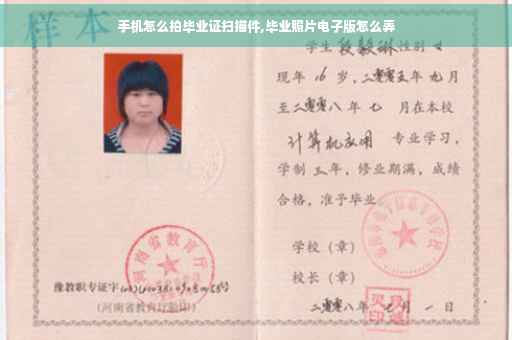 手机怎么拍毕业证扫描件,毕业照片电子版怎么弄
样本
学生 段毅琳 性别 女
现年 16 岁，二零零五年 九 月
至二零零八年 七 月在本校
计算机应用 专业学习，
学制 三 年，修业期满，成绩
合格，准予毕业。
学校（章）
校长（章）
二零零八年 七 月 一 日
河南省教育厅
豫教职专证字
（河南省教育厅验印）